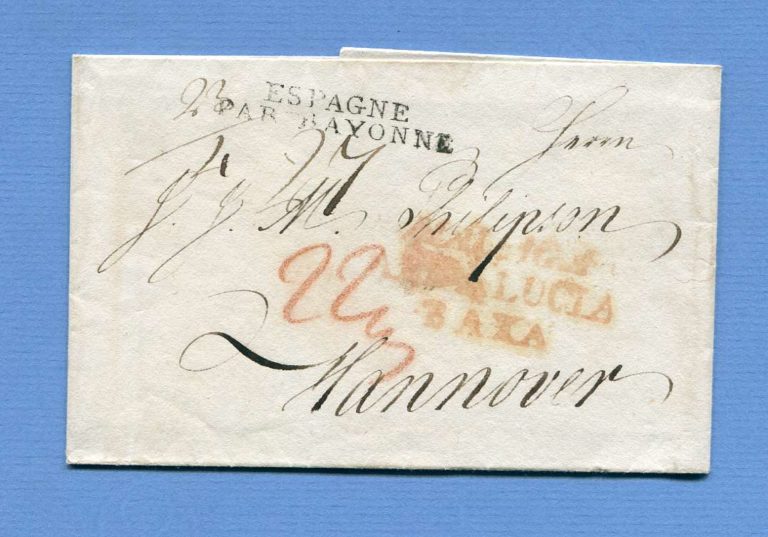 23
ESPAGNE
PAR BAYONNE
Herrn
J. J. M. Philipson
22
ANDALUCIA
BAXA
Hannover